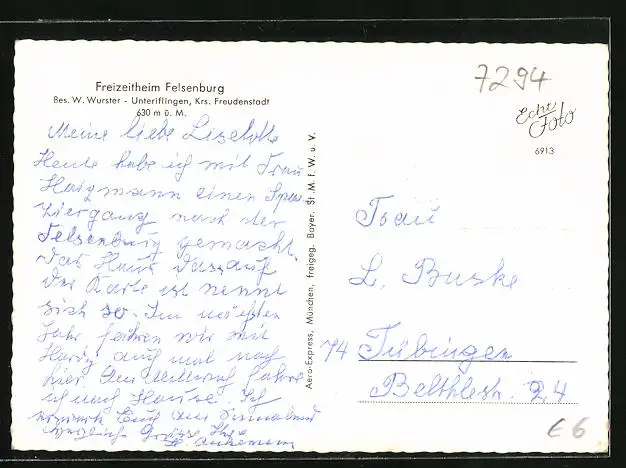 Freizeitheim Felsenburg
Bes. W. Wurster - Unteriflingen, Krs. Freudenstadt
630 m ü. M.
7294
Echt
Foto
6913
Meine liebe Liselotte
Heute habe ich mit Frau
einen Spa-
ziergang nach der
Felsenburg gemacht.
Das Haus dass auf
der Karte ist nennt
sich so. Im nächsten
Jahr fahren wir mit
auch mal nach
hier. Am Mittwoch fahre
ich nach Hause. Ich
Euch am Sonnabend
Herzlich Grüsse
Aero-Express, München, freigeg. Bayer. St. M. f. W. u. V.
Frau
L. Buske
74 Tübingen
24
€6